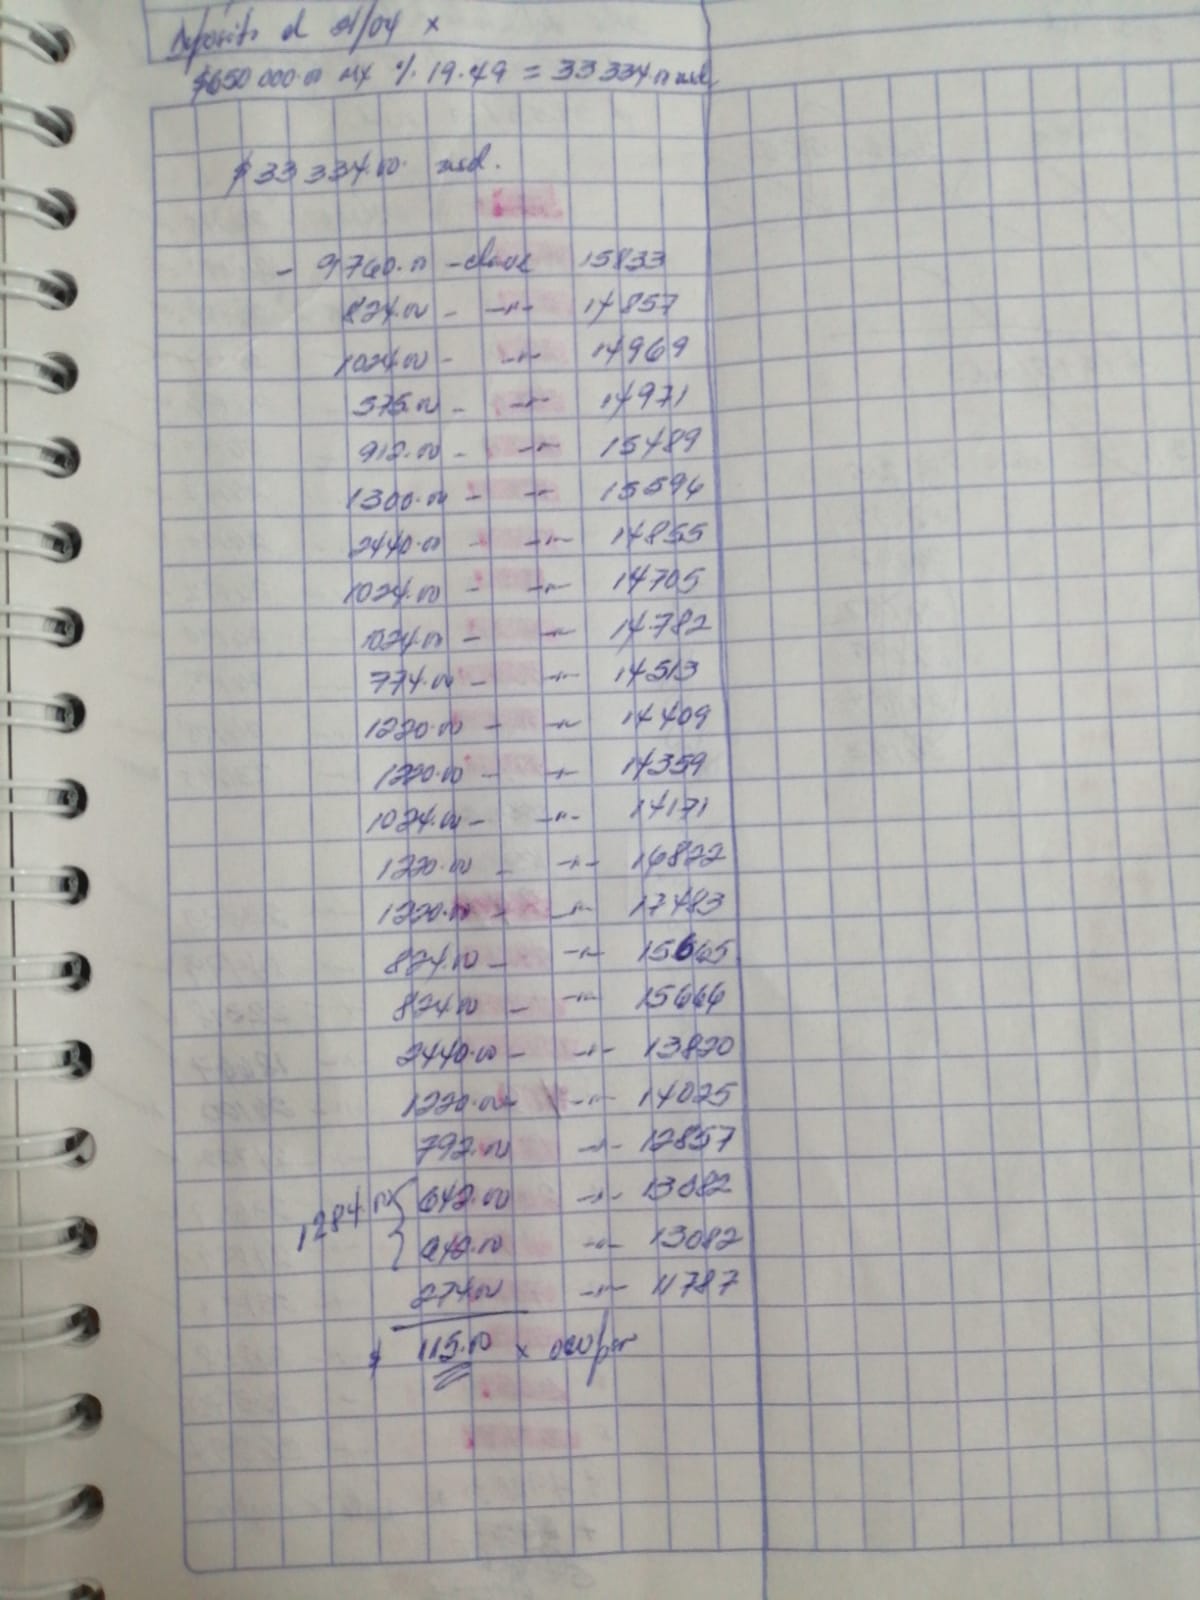 Deposito d 21/04 x
$650 000.00 MX % 19.49 = 33 334.00 usd
$33 334.00 usd.
- 9,760.00 - clave 15833
824.00 - -"- 14857
1024.00 - -"- 14969
575.00 - -"- 14971
912.00 - -"- 15489
1300.00 - -"- 15594
2440.00 - -"- 14855
1024.00 - -"- 14705
1024.00 - -"- 14782
774.00 - -"- 14513
1220.00 - -"- 14409
1220.00 - -"- 14359
1024.00 - -"- 14171
1220.00 - -"- 16822
1220.00 - -"- 17483
824.00 - -"- 15665
824.00 - -"- 15666
2440.00 - -"- 13820
1220.00 - -"- 14025
792.00 -"- 12857
1284.00 { 642.00 -"- 13082
642.00 -"- 13082
274.00 -"- 11787
$ 115.00 x ocupar